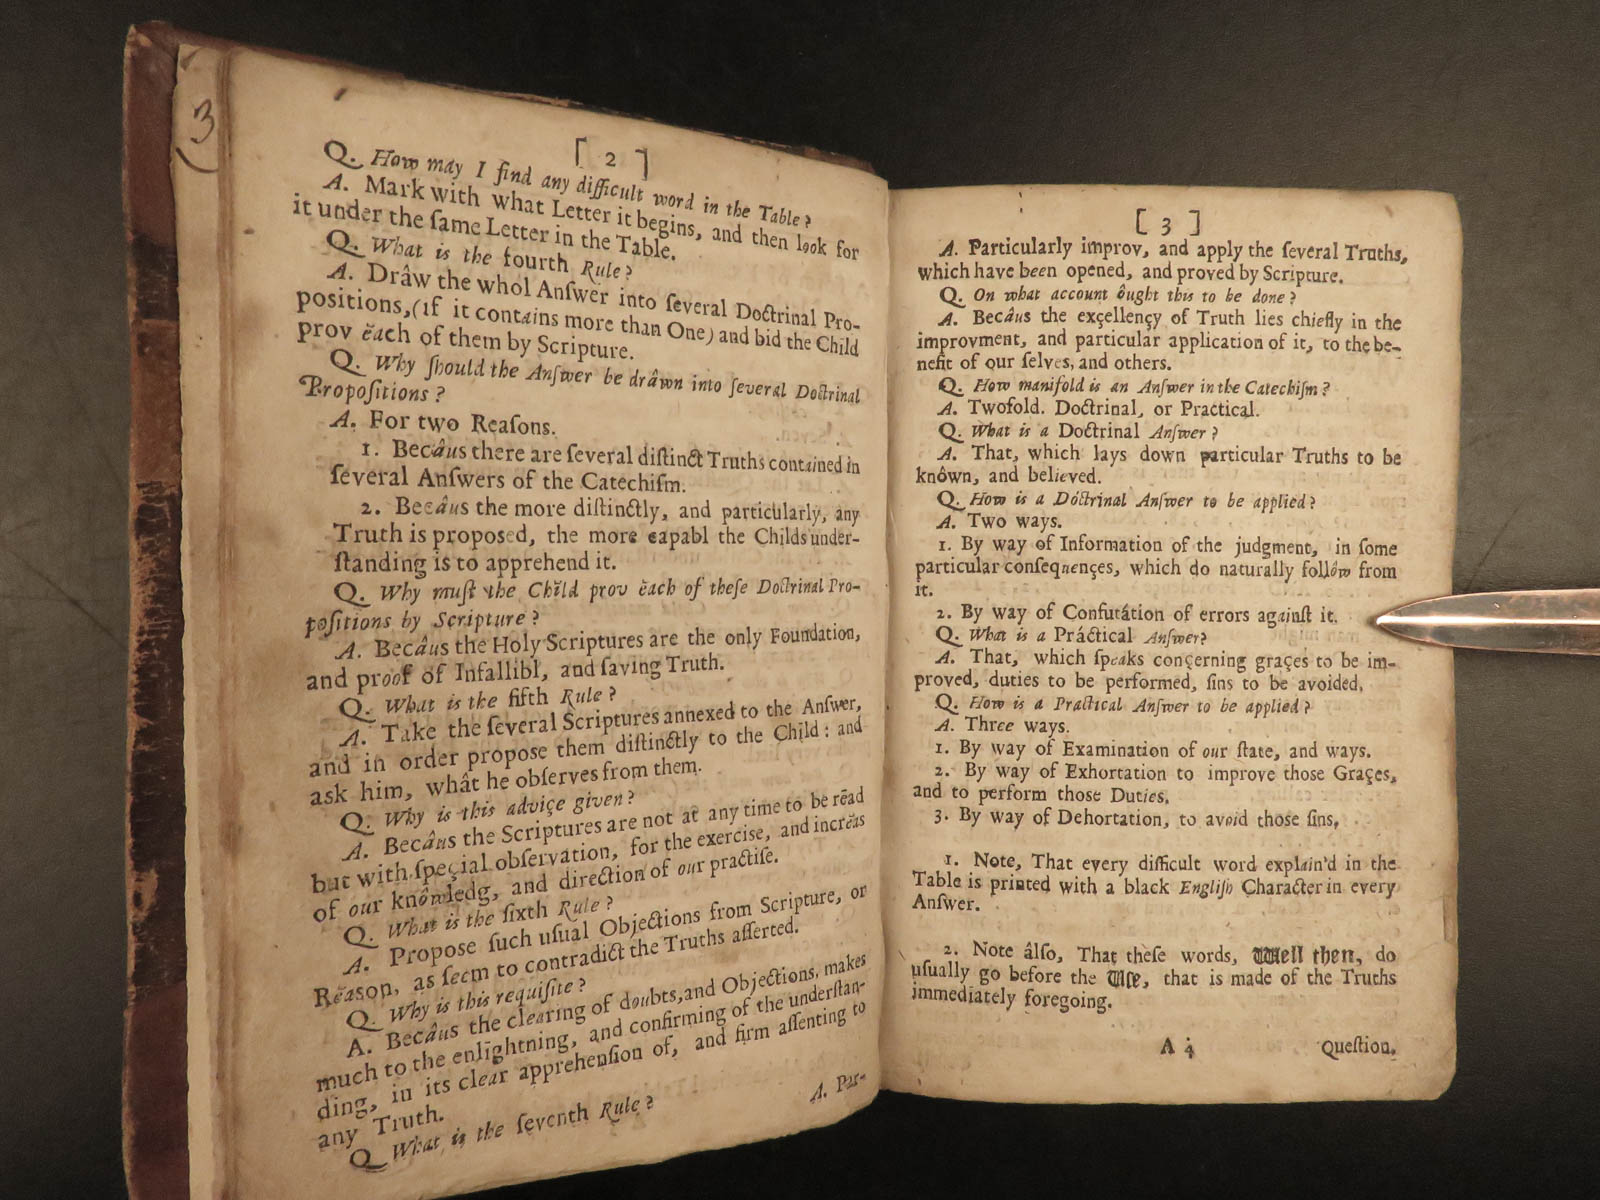 3
[ 2 ]
Q. How may I find any difficult word in the Table?
A. Mark with what Letter it begins, and then look for
it under the ſame Letter in the Table.
Q. What is the fourth Rule?
A. Drâw the whol Anſwer into ſeveral Doctrinal Pro-
poſitions,(if it contains more than One) and bid the Child
prov ĕach of them by Scripture.
Q. Why ſhould the Anſwer be drâwn into ſeveral Doctrinal
Propoſitions?
A. For two Reaſons.
1. Becâus there are ſeveral diſtinct Truths contained in
ſeveral Anſwers of the Catechiſm.
2. Becâus the more diſtinctly, and particularly, any
Truth is proposed, the more capabl the Childs under-
ſtanding is to apprehend it.
Q. Why muſt the Chĭld prov ĕach of theſe Doctrinal Pro-
poſitions by Scripture?
A. Becâus the Holy Scriptures are the only Foundation,
and proof of Infallibl, and ſaving Truth.
Q. What is the fifth Rule?
A. Take the ſeveral Scriptures annexed to the Anſwer,
and in order propose them diſtinctly to the Chĭld: and
ask him, whât he obſerves from them.
Q. Why is this adviçe given?
A. Becâus the Scriptures are not at any time to be rĕad
but with ſpeçial obſervation, for the exerciſe, and increas
of our knôwledg, and direction of our practiſe.
Q. What is the ſixth Rule?
A. Propose ſuch uſual Objections from Scripture, or
Rĕaſon, as ſeem to contradict the Truths aſſerted.
Q. Why is this requiſite?
A. Becâus the clearing of doubts,and Objections, makes
much to the enlightning, and confirming of the underſtan-
ding, in its clear apprehenſion of, and firm aſſenting to
any Truth.
Q What is the ſeventh Rule?
A. Par-
[ 3 ]
A. Particularly improv, and apply the ſeveral Truths,
which have been opened, and proved by Scripture.
Q. On what account ôught this to be done?
A. Becâus the exçellençy of Truth lies chiefly in the
improvment, and particular application of it, to the be-
nefit of our ſelves, and others.
Q. How manifold is an Anſwer in the Catechiſm?
A. Twofold. Doctrinal, or Practical.
Q. What is a Doctrinal Anſwer?
A. That, which lays down particular Truths to be
knôwn, and believed.
Q. How is a Dóctrinal Anſwer to be applied?
A. Two ways.
1. By way of Information of the judgment, in ſome
particular conſequençes, which do naturally follôw from
it.
2. By way of Confutátion of errors againſt it.
Q. What is a Práctical Anſwer?
A. That, which ſpeaks conçerning graçes to be im-
proved, duties to be performed, ſins to be avoided.
Q. How is a Practical Anſwer to be applied?
A. Three ways.
1. By way of Examination of our ſtate, and ways.
2. By way of Exhortation to improve those Graçes,
and to perform those Duties,
3. By way of Dehortation, to avoid those ſins,
1. Note, That every difficult word explain'd in the
Table is printed with a black Engliſh Character in every
Anſwer.
2. Note âlso, That thèſe words, Well then, do
uſually go before the Uſe, that is made of the Truths
immediately foregoing.
A 4
Queſtion,